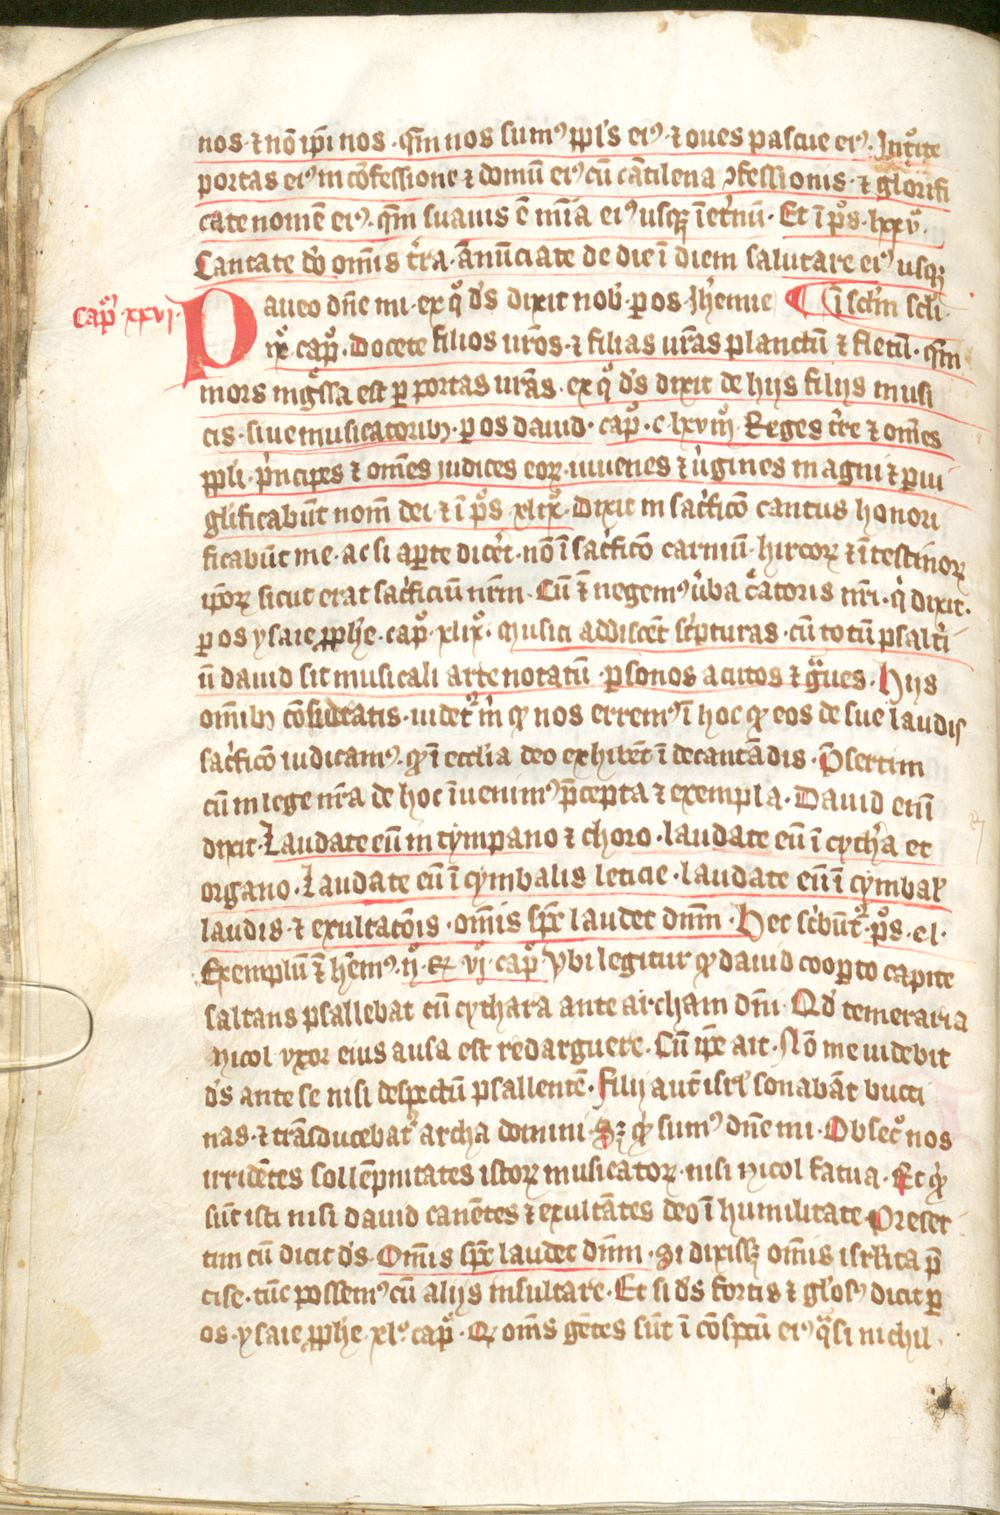 nos · ⁊ nō ip̄i nos · qm̄ nos sumꝰ ppl̄s eiꝰ · ⁊ oues pascue eiꝰ · Introite
portas eiꝰ in cōfessione ⁊ domū eiꝰ cū cātilena ꝯfessionis · ⁊ glorifi
cate nomē eiꝰ · qm̄ suauis ē mīa eiꝰ usqꝫ ī et̄nū · Et ī pͦs · lxxxv ·
Cantate dō om̄is t̄ra · ānūciate de die ī diem salutare eiꝰ usqꝫ
capͦ · xxvi ·
Paueo dn̄e mi · ex qͦ dꝰs dixit nob̄ · ꝑ os Jh̄emie ¶ ī sc̄tm̄ scl̄i ·
ixͦ · capͦ · Docete filios ur̄os · ⁊ filias ur̄as planctū ⁊ fletū · qm̄
mors ingͣssa est ꝑ portas ur̄as · ex qͦ dꝰs dixit de hijs filijs musi
cis · siue musicatoribꝫ · ꝑ os dauid · capͦ · c · lxviij · Reges t̄re ⁊ om̄es
ppl̄i · p̄ncipes ⁊ om̄es iudices eoꝝ · iuuenes ⁊ ūgines magni ⁊ ꝑui
gl̄ificabūt nom̄ dei · ⁊ ī pͦs · xlixͦ · Dixit in sac̄ficō cantus honori
ficabūt me · ac si aꝑte dic̄et · nō ī sac̄ficō carniū · hircoꝝ ⁊ ītestinoꝝ
ip̄oꝝ sicut erat sac̄ficiū nr̄m · Cū ⁊̄ negemꝰ ūba cͣatoris nr̄i · qͥ dixit ·
ꝑ os ysaie ꝓph̄e · capͦ · xlixͦ · Musici addiscēt sc̄pturas · cū totū psalt̄i
ū dauid sit musicali arte notatū · ꝑ sonos acutos ⁊ gͣues · Hijs
om̄ibꝫ cōsideratis · uidetᷣ m̄ ꝙ nos erremꝰ ī hoc ꝙ eos de sue laudis
sac̄ficō iudicamꝰ · ꝙ ī eccl̄ia deo exhibēt ī decantādis · P̄sertim
cū in lege nr̄a de hoc īuenimꝰ p̄cepta ⁊ exempla · Dauid etiā
dixit · Laudate eū in tympano ⁊ choro · laudate eū ī cyth̄a et
organo · Laudate eū ī cymbalis leticie · laudate eū ī cymbal̄
laudis · ⁊ exultatōis · om̄is sp̄c laudet dn̄m · Hec sc̄būtᷣ · pͦs · cl ·
Exemplū ⁊̄ hēmꝰ · ijͦ · R̄ · vjͦ · capͦ Vbi legitur ꝙ dauid cooꝑto capite
saltans psallebat cū cythara ante archam dn̄i · Qd̄ temeraria
Nicol vxor eius ausa est redarguere · Cū ip̄e ait · Nō me uidebit
dꝰs ante se nisi despectū psallentē · Filij aut̄ isrl̄ sonabāt bucci
nas · ⁊ trāsducebatᷣ archa domini · Sꝫ qͥ sumꝰ dn̄e mi · Obsecͦ nos
irridētes sollēpnitates istoꝝ musicatoꝝ · nisi Nicol fatua · Et qͥ
sūt isti nisi dauid canētes ⁊ exultātes deo ī humilitate · Preser
tim cū dicit dꝰs · Om̄is sp̄c laudet dn̄m · Si dixissꝫ om̄is isrl̄ita p̄
cise · tūc possemꝰ cū alijs insultare · Et si dꝰs fortis ⁊ gl̄osꝰ dicit ꝑ
os · ysaie ꝓphe · xl · capͦ · Qꝫ om̄s gētes sūt ī cōspectū eiꝰ qͣsi nichil ·